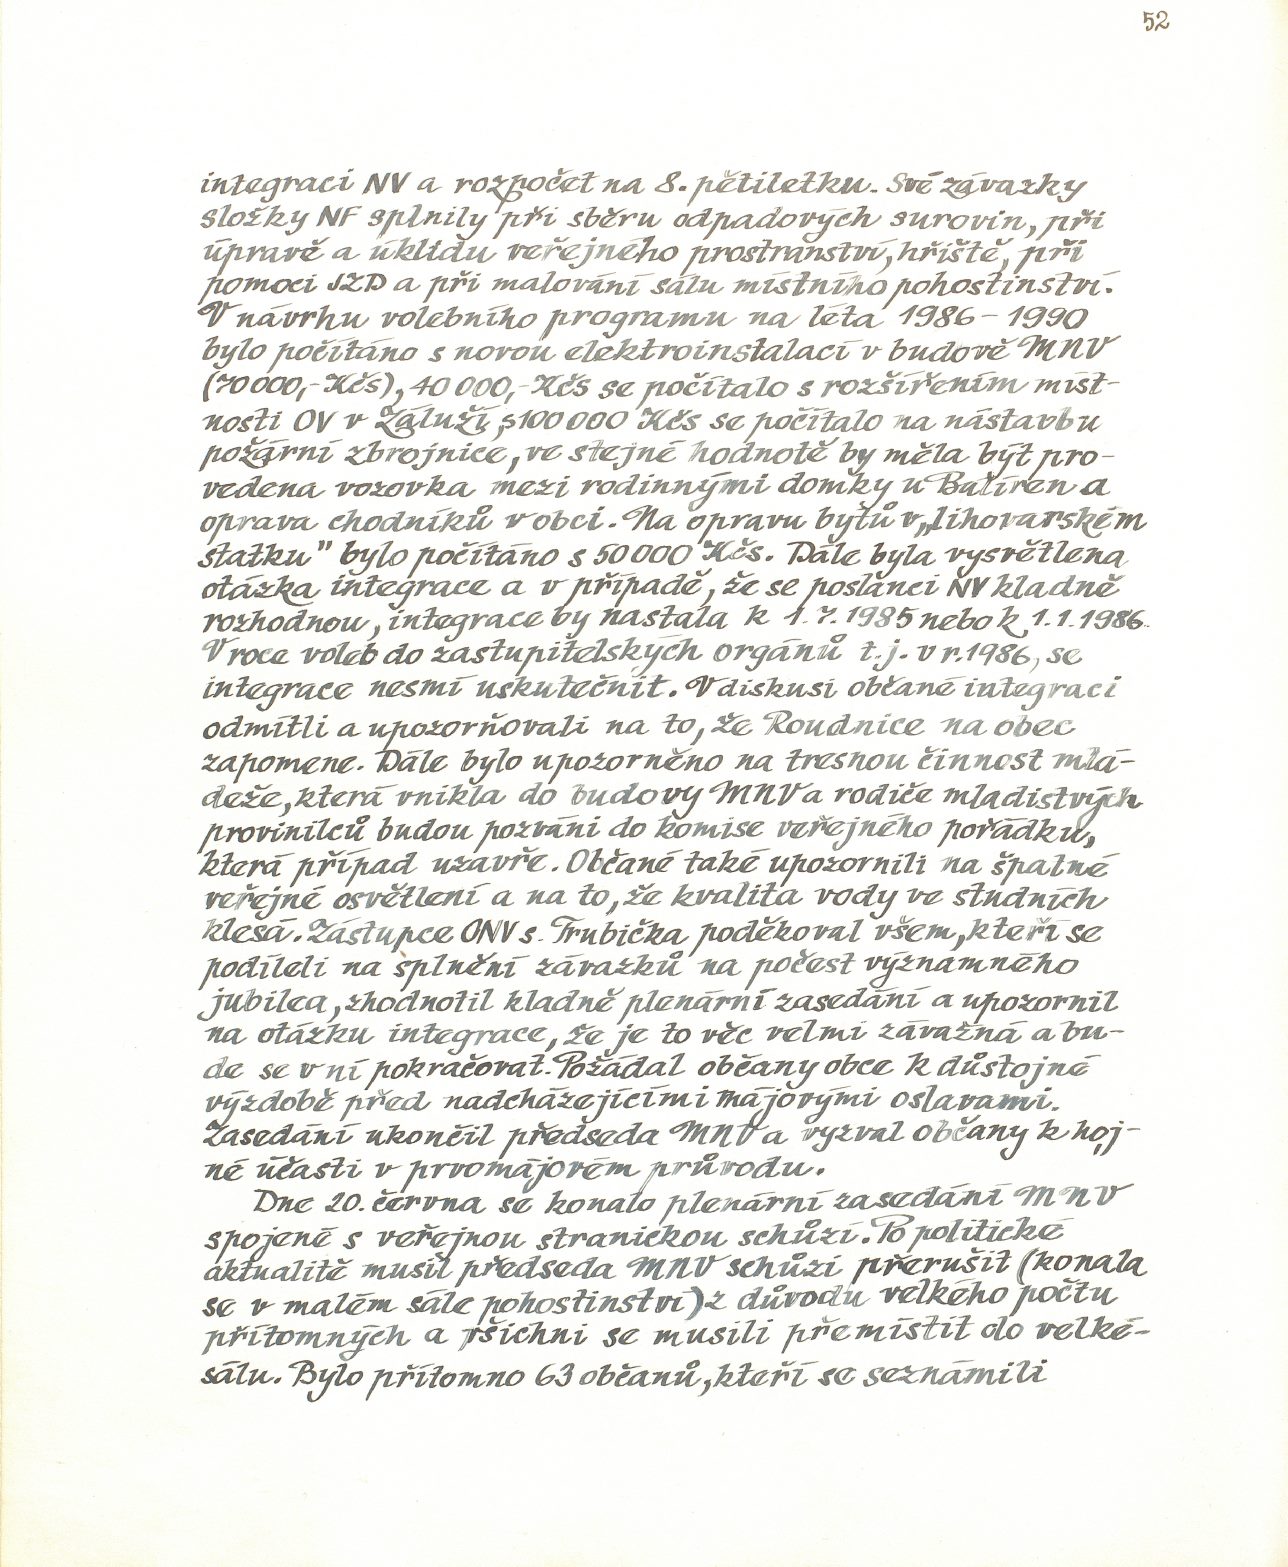 52
integraci NV a rozpočet na 8. pětiletku. Své závazky
složky NF splnily při sběru odpadových surovin, při
úpravě a úklidu veřejného prostranství, hřiště, při
pomoci JZD a při malování sálu místního pohostinství.
V návrhu volebního programu na léta 1986 - 1990
bylo počítáno s novou elektroinstalací v budově MNV
(70 000,- Kčs), 40 000,- Kčs se počítalo s rozšířením míst-
nosti OV v Záluží, s 100 000 Kčs se počítalo na nástavbu
požární zbrojnice, ve stejné hodnotě by měla být pro-
vedena vozovka mezi rodinnými domky u Balíren a
oprava chodníků v obci. Na opravu bytů v „lihovarském
statku" bylo počítáno s 50 000 Kčs. Dále byla vysvětlena
otázka integrace a v případě, že se poslanci NV kladně
rozhodnou, integrace by nastala k 1. 7. 1985 nebo k 1. 1. 1986.
V roce voleb do zastupitelských orgánů t. j. v r. 1986, se
integrace nesmí uskutečnit. V diskusi občané integraci
odmítli a upozorňovali na to, že Roudnice na obec
zapomene. Dále bylo upozorněno na tresnou činnost mlá-
deže, která vnikla do budovy MNV a rodiče mladistvých
provinilců budou pozváni do komise veřejného pořádku,
která případ uzavře. Občané také upozornili na špatné
veřejné osvětlení a na to, že kvalita vody ve studních
klesá. Zástupce ONV s. Trubička poděkoval všem, kteří se
podíleli na splnění závazků na počest významného
jubilea, zhodnotil kladně plenární zasedání a upozornil
na otázku integrace, že je to věc velmi závažná a bu-
de se v ní pokračovat. Požádal občany obce k důstojné
výzdobě před nadcházejícími májovými oslavami.
Zasedání ukončil předseda MNV a vyzval občany k hoj-
né účasti v prvomájovém průvodu.
Dne 20. června se konalo plenární zasedání MNV
spojené s veřejnou stranickou schůzí. Po politické
aktualitě musil předseda MNV schůzi přerušit (konala
se v malém sále pohostinství) z důvodu velkého počtu
přítomných a všichni se musili přemístit do velké-
sálu. Bylo přítomno 63 občanů, kteří se seznámili